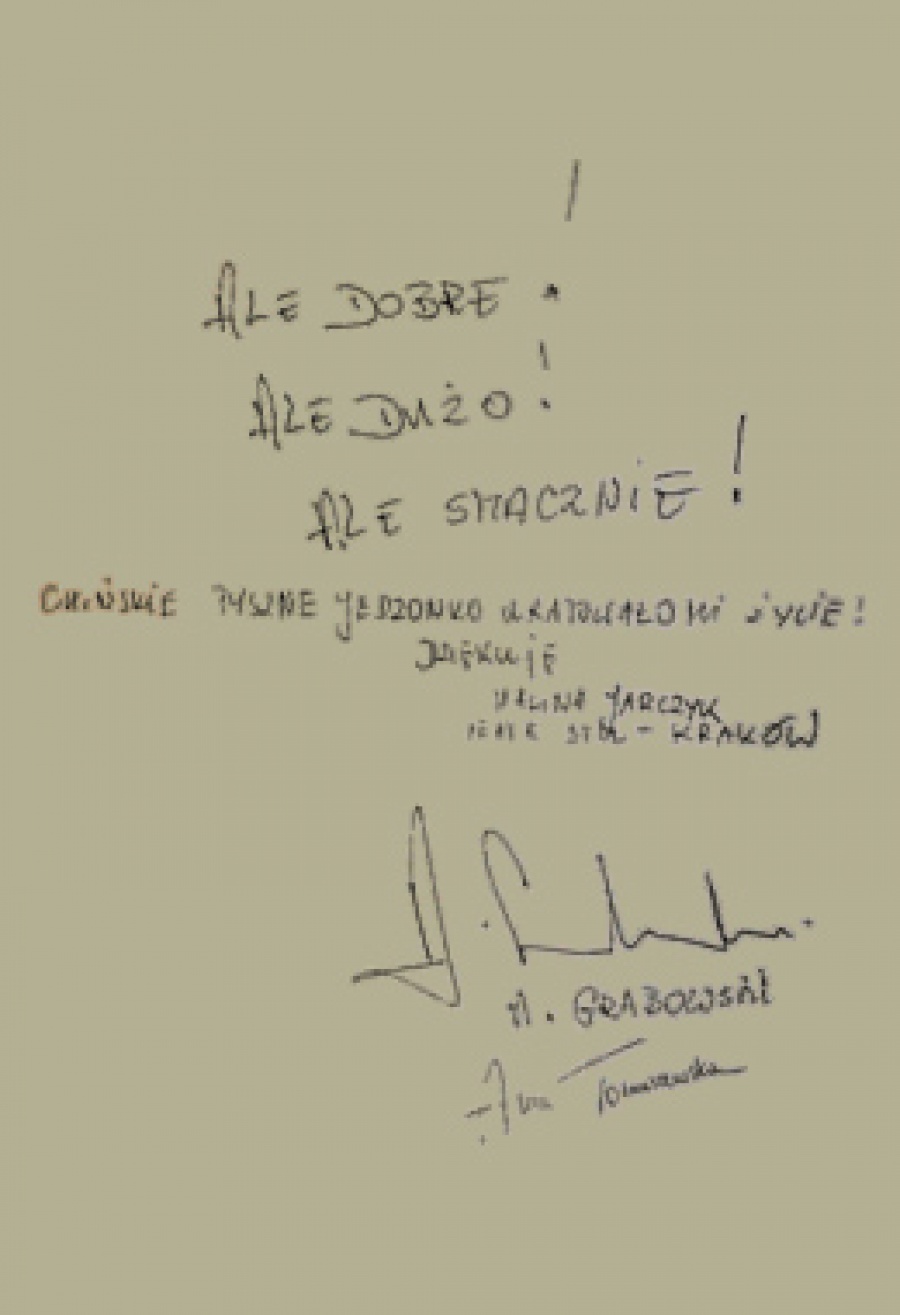 ALE DOBRE!
ALE DUŻO!
ALE SMACZNIE!
CHIŃSKIE PYSZNE JEDZONKO URATOWAŁO MI ŻYCIE!
DZIĘKUJĘ
HALINA JARCZYK
TEATR STU - KRAKÓW
A. GRABOWSKI